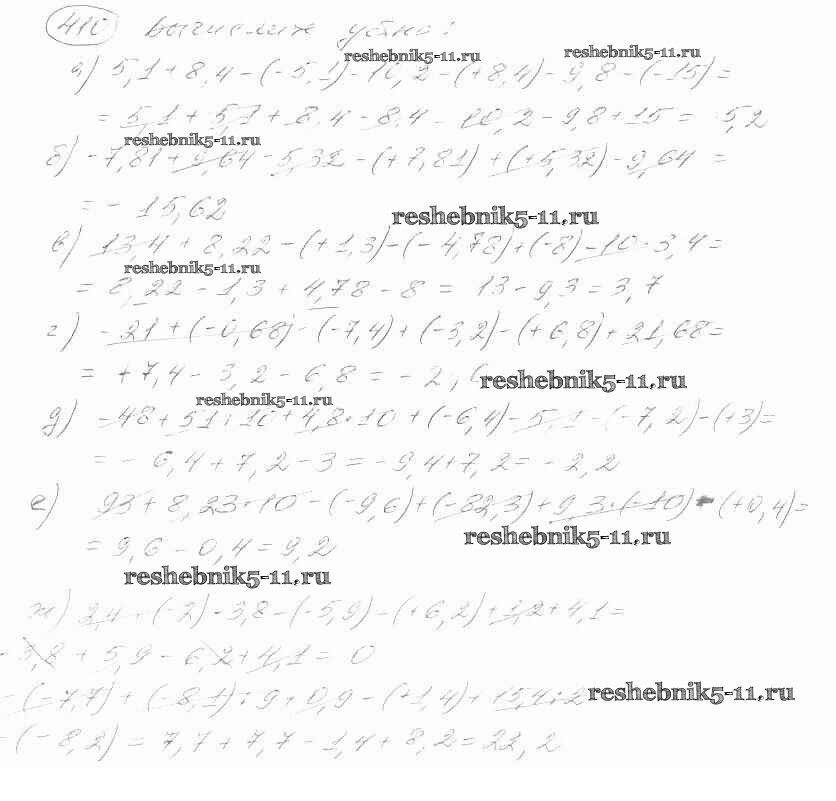 410 вычислить устно:
reshebnik5-11.ru reshebnik5-11.ru
а) 5,1 + 8,4 - (-5,1) - 10,2 - (+8,4) - 9,8 - (-15) =
= 5,1 + 5,1 + 8,4 - 8,4 - 10,2 - 9,8 + 15 = 5,2
reshebnik5-11.ru
б) -7,81 + 9,64 - 5,32 - (+7,81) + (+5,32) - 9,64 =
= - 15,62
reshebnik5-11.ru
в) 13,4 + 8,22 - (+1,3) - (-4,78) + (-8) - 10 - 3,4 =
reshebnik5-11.ru
= 8,22 - 1,3 + 4,78 - 8 = 13 - 9,3 = 3,7
г) - 21 + (-0,68) - (-7,4) + (-3,2) - (+6,8) + 21,68 =
= +7,4 - 3,2 - 6,8 = - 2,6
reshebnik5-11.ru
reshebnik5-11.ru
д) -48 + 51 : 10 + 4,8 · 10 + (-6,4) - 5,1 - (-7,2) - (+3) =
= - 6,4 + 7,2 - 3 = - 9,4 + 7,2 = - 2,2
е) 93 + 8,23 · 10 - (-9,6) + (-82,3) + 9,3 · (-10) - (+0,4) =
reshebnik5-11.ru
= 9,6 - 0,4 = 9,2
reshebnik5-11.ru
ж) 2,4 : (-2) - 3,8 - (-5,9) - (+6,2) + 1,2 + 4,1 =
- 3,8 + 5,9 - 6,2 + 4,1 = 0
- (-7,7) + (-8,1) : 9 + 0,9 - (+1,4) + 15,4 : 2
reshebnik5-11.ru
- (-8,2) = 7,7 + 7,7 - 1,4 + 8,2 = 22,2